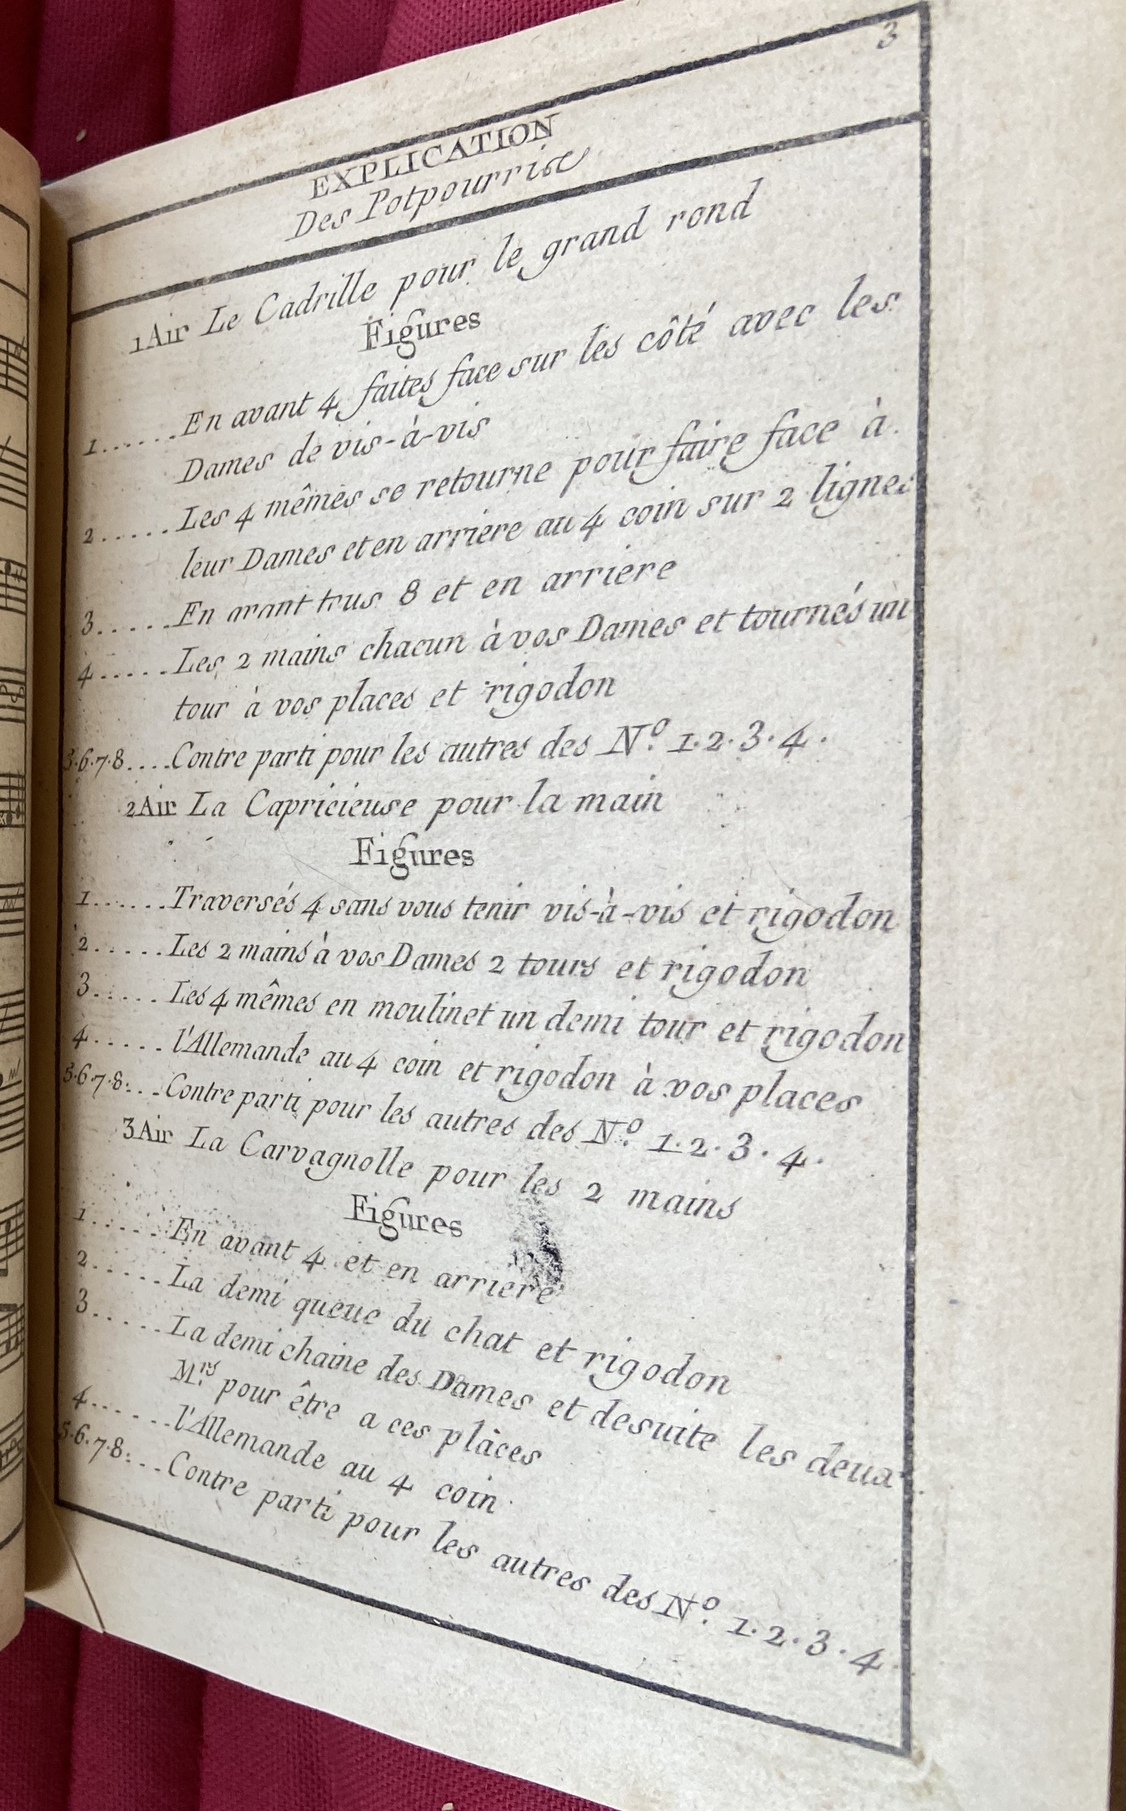 3
EXPLICATION
Des Potpourris
1 Air Le Cadrille pour le grand rond
Figures
1......En avant 4 faites face sur les côté avec les
Dames de vis-à-vis
2......Les 4 mêmes se retourne pour faire face à
leur Dames et en arriere au 4 coin sur 2 lignes
3......En avant tous 8 et en arriere
4......Les 2 mains chacun à vos Dames et tournés un
tour à vos places et rigodon
5.6.7.8....Contre parti pour les autres des N.º 1.2.3.4.
2 Air La Capricieuse pour la main
Figures
1......Traversés 4 sans vous tenir vis-à-vis et rigodon
2......Les 2 mains à vos Dames 2 tours et rigodon
3......Les 4 mêmes en moulinet un demi tour et rigodon
4......l'Allemande au 4 coin et rigodon à vos places
5.6.7.8....Contre parti pour les autres des N.º 1.2.3.4.
3 Air La Carvagnolle pour les 2 mains
Figures
1......En avant 4 et en arriere
2......La demi queue du chat et rigodon
3......La demi chaine des Dames et desuite les deux
M.rs pour être a ces plàces
4......l'Allemande au 4 coin
5.6.7.8....Contre parti pour les autres des N.º 1.2.3.4